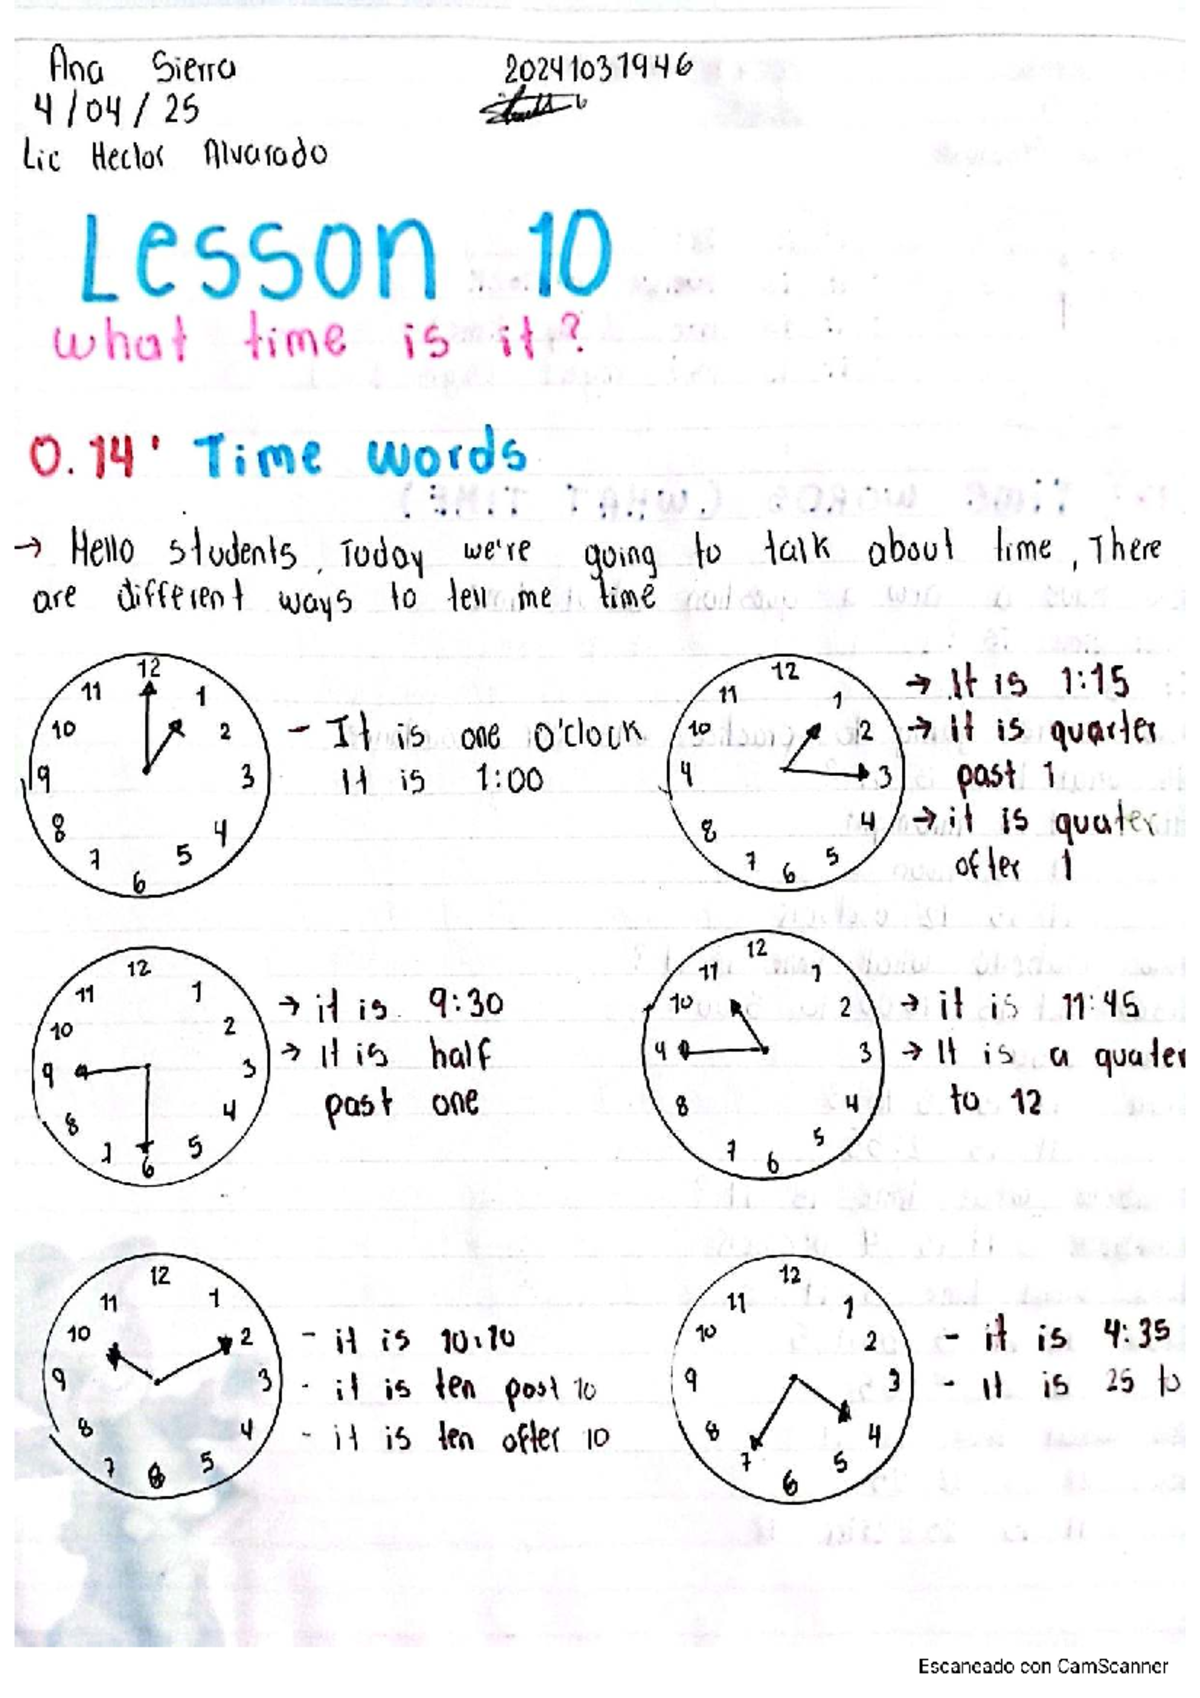 Ana Sierra 20241031946
4/04/25
Lic Hector Alvarado
Lesson 10
what time is it?
0.14' Time words
→ Hello students, Today we're going to talk about time, There
are different ways to tell me time
12
11 1
10 2
9 3
8 4
7 5
6
- It is one o'clock
It is 1:00
12
11 1
10 2
4 3
8 4
7 5
6
→ It is 1:15
→ It is quarter
past 1
→ it is quater
after 1
12
11 1
10 2
9 3
8 4
7 5
6
→ it is 9:30
→ It is half
past one
12
11 1
10 2
4 3
8 4
7 5
6
→ it is 11:45
→ It is a quater
to 12
12
11 1
10 2
9 3
8 4
7 5
6
- it is 10:10
- it is ten past 10
- it is ten after 10
12
11 1
10 2
9 3
8 4
7 5
6
- it is 4:35
- It is 25 to
Escaneado con CamScanner